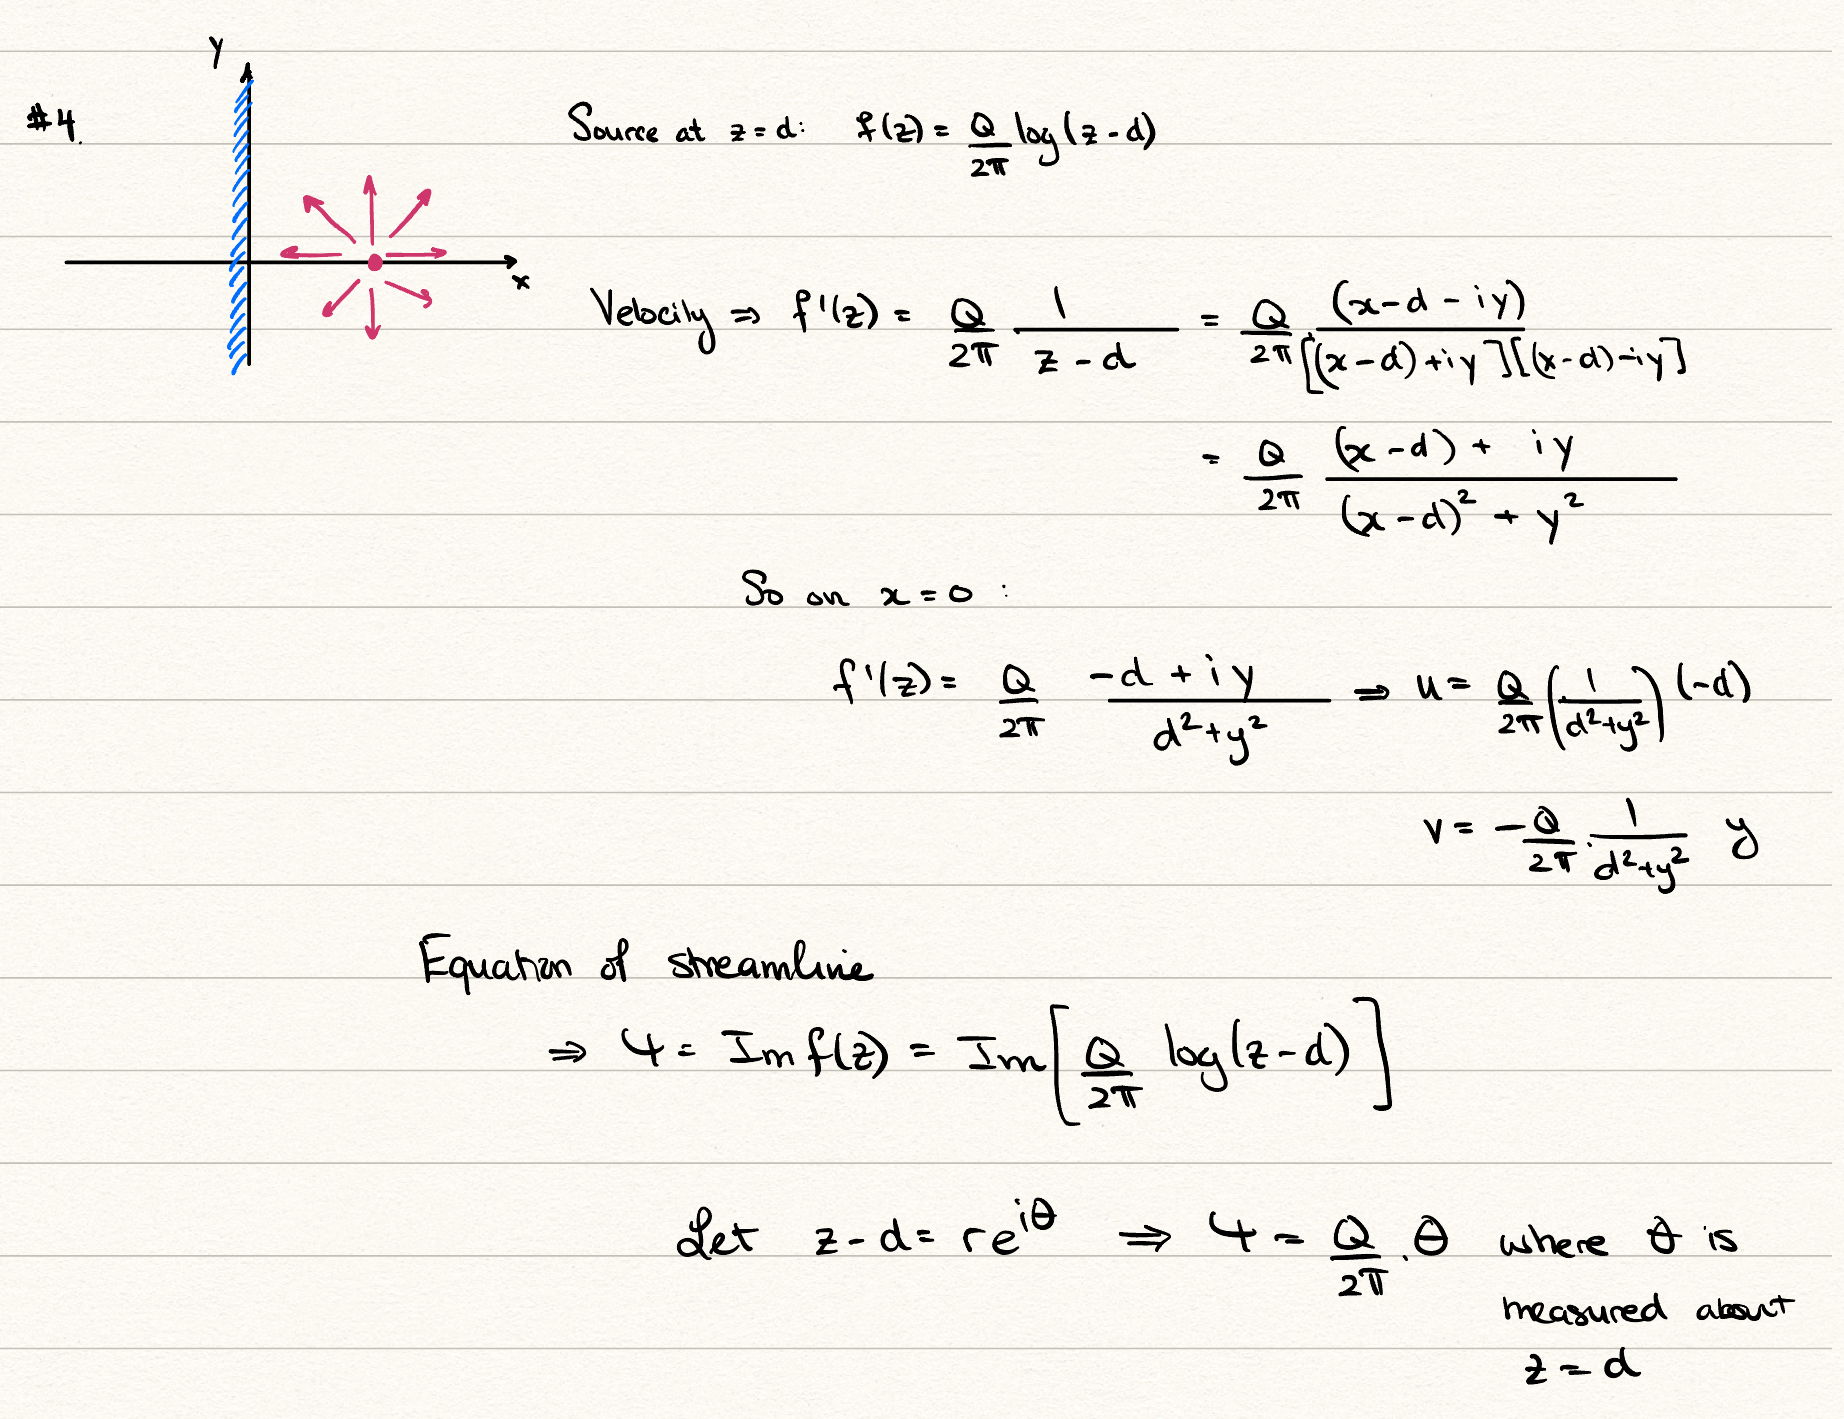 y
#4.
Source at z = d: f(z) = Q/2π log(z - d)
x
Velocity ⇒ f'(z) = Q/2π 1/(z - d) = Q/2π (x - d - iy)/([(x - d) + iy][(x - d) - iy])
= Q/2π ((x - d) + iy)/((x - d)² + y²)
So on x = 0 :
f'(z) = Q/2π (-d + iy)/(d² + y²) ⇒ u = Q/2π (1/(d² + y²)) (-d)
v = -Q/2π · 1/(d² + y²) y
Equation of streamline
⇒ Ψ = Im f(z) = Im[Q/2π log(z - d)]
Let z - d = re^{iθ} ⇒ Ψ = Q/2π · θ where θ is
measured about
z = d